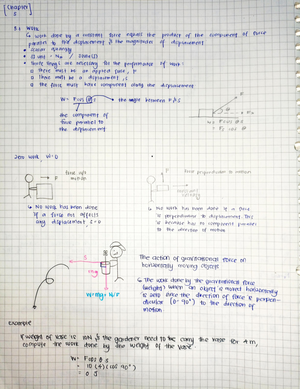 [Chapter 5]
5.1 Work
↳ work done by a constant force equals the product of the component of force
parallel to the displacement & the magnitude of displacement
• scalar quantity
• SI unit - Nm / Joule (J)
• Three things are necessary for the performance of work:
① there must be an applied force, F
② there must be a displacement, s
③ the force must have component along the displacement
W = F cos θ s → the angle between F & s
the component of
force parallel to
the displacement
W = F cos θ s
Zero work W = 0
F
force w/o
motion
↳ No work has been done
if a force not affects
any displacement s = 0
F
force perpendicular to motion
↳ No work has been done if a force
is perpendicular to displacement. This
is because has no component parallel
to the direction of motion
s
mg
The action of gravitational force on
horizontally moving object
↳ The work done by the gravitational force
(weight) when an object is moved horizontally
is zero since the direction of force is perpen-
dicular (θ = 90°) to the direction of
motion
example
If weight of vase is 10N & the gardener need to carry the vase for 4m,
compute the work done by the weight of the vase
W = F cos θ s
= 10 (4) (cos 90°)
= 0 J